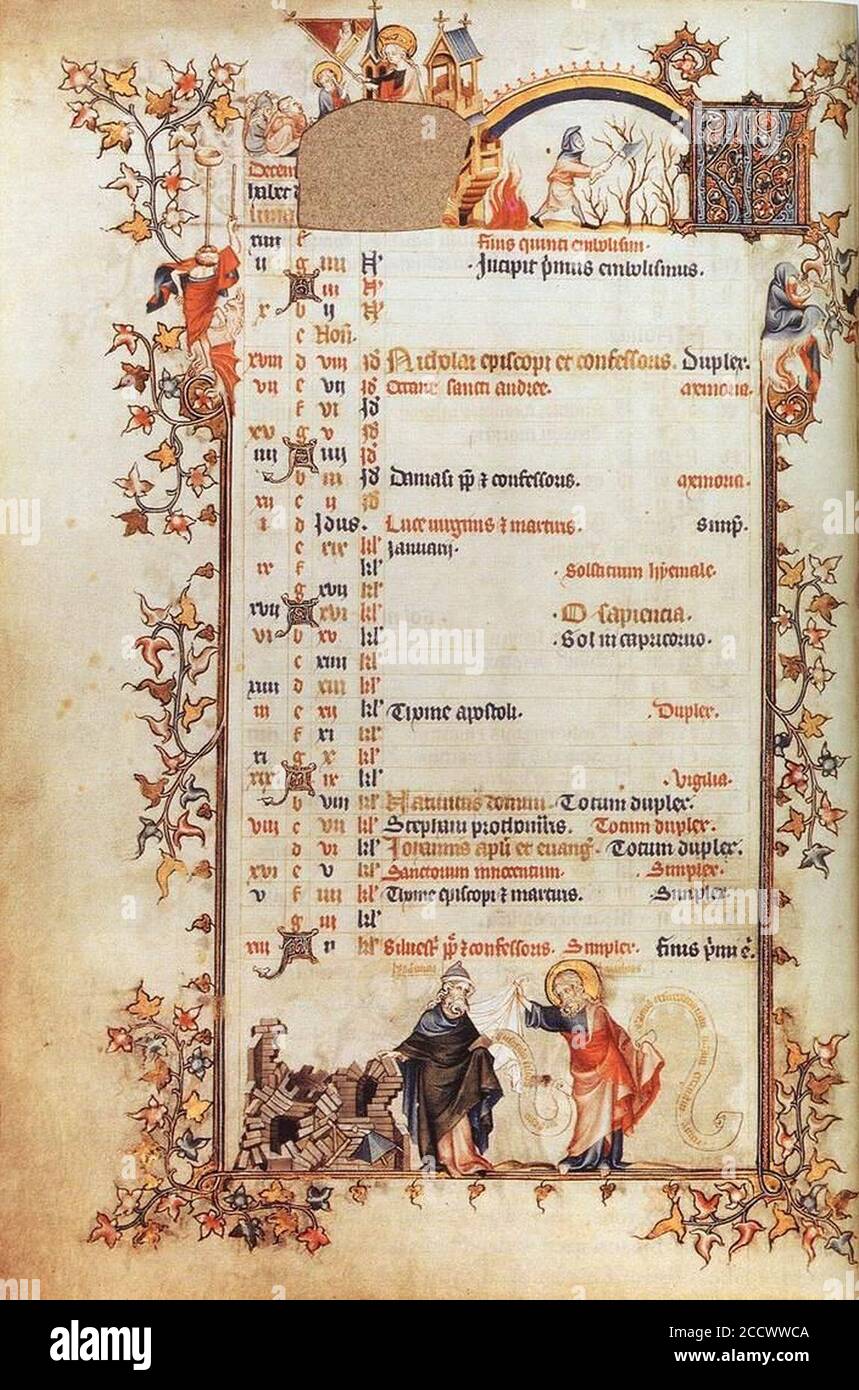 Decem
habet
xiiii f finis quinti embolismi.
ii g iiii N Incipit primus embolismus.
A iii N
x b ii N
c Non.
xviii d viii id Nicholai episcopi et confessoris. Duplex.
vii e vii id Octave sancti andree. memoria.
f vi id
xv g v id
iiii A iiii id
b iii id Damasi pp ⁊ confessoris. memoria.
xii c ii id
i d Idus. Lucie virginis ⁊ martiris. simp.
e xix kl Januarii.
ix f kl Solsticium hyemale.
g xvii kl
xvii A xvi kl O sapiencia.
vi b xv kl Sol in capricorno.
c xiiii kl
xiiii d xiii kl
iii e xii kl Thome apostoli. Duplex.
f xi kl
xi g x kl
xix A ix kl Vigilia.
b viii kl Nativitas domini. Totum duplex.
viii c vii kl Stephani prothomris. Totum duplex.
d vi kl Johannis apli et euang. Totum duplex.
xvi e v kl Sanctorum innocentum. Simplex.
v f iiii kl Thome episcopi ⁊ martiris. Simplex.
g iii kl
xiii A ii kl Silvest pp ⁊ confessoris. Simplex. finis primi e.
alamy
Image ID: 2CCWWCA
www.alamy.com